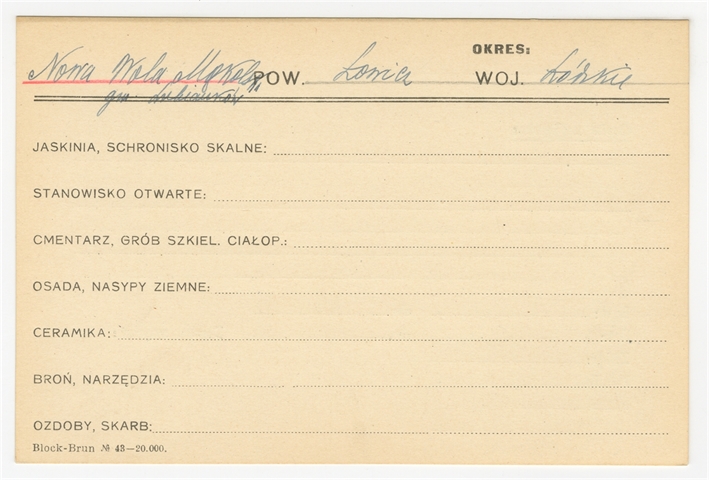 OKRES:
Nowa Wola POW. Łowicz WOJ. Łódzkie
gm.
JASKINIA, SCHRONISKO SKALNE:
STANOWISKO OTWARTE:
CMENTARZ, GRÓB SZKIEL. CIAŁOP.:
OSADA, NASYPY ZIEMNE:
CERAMIKA:
BROŃ, NARZĘDZIA:
OZDOBY, SKARB:
Block-Brun № 43—20.000.